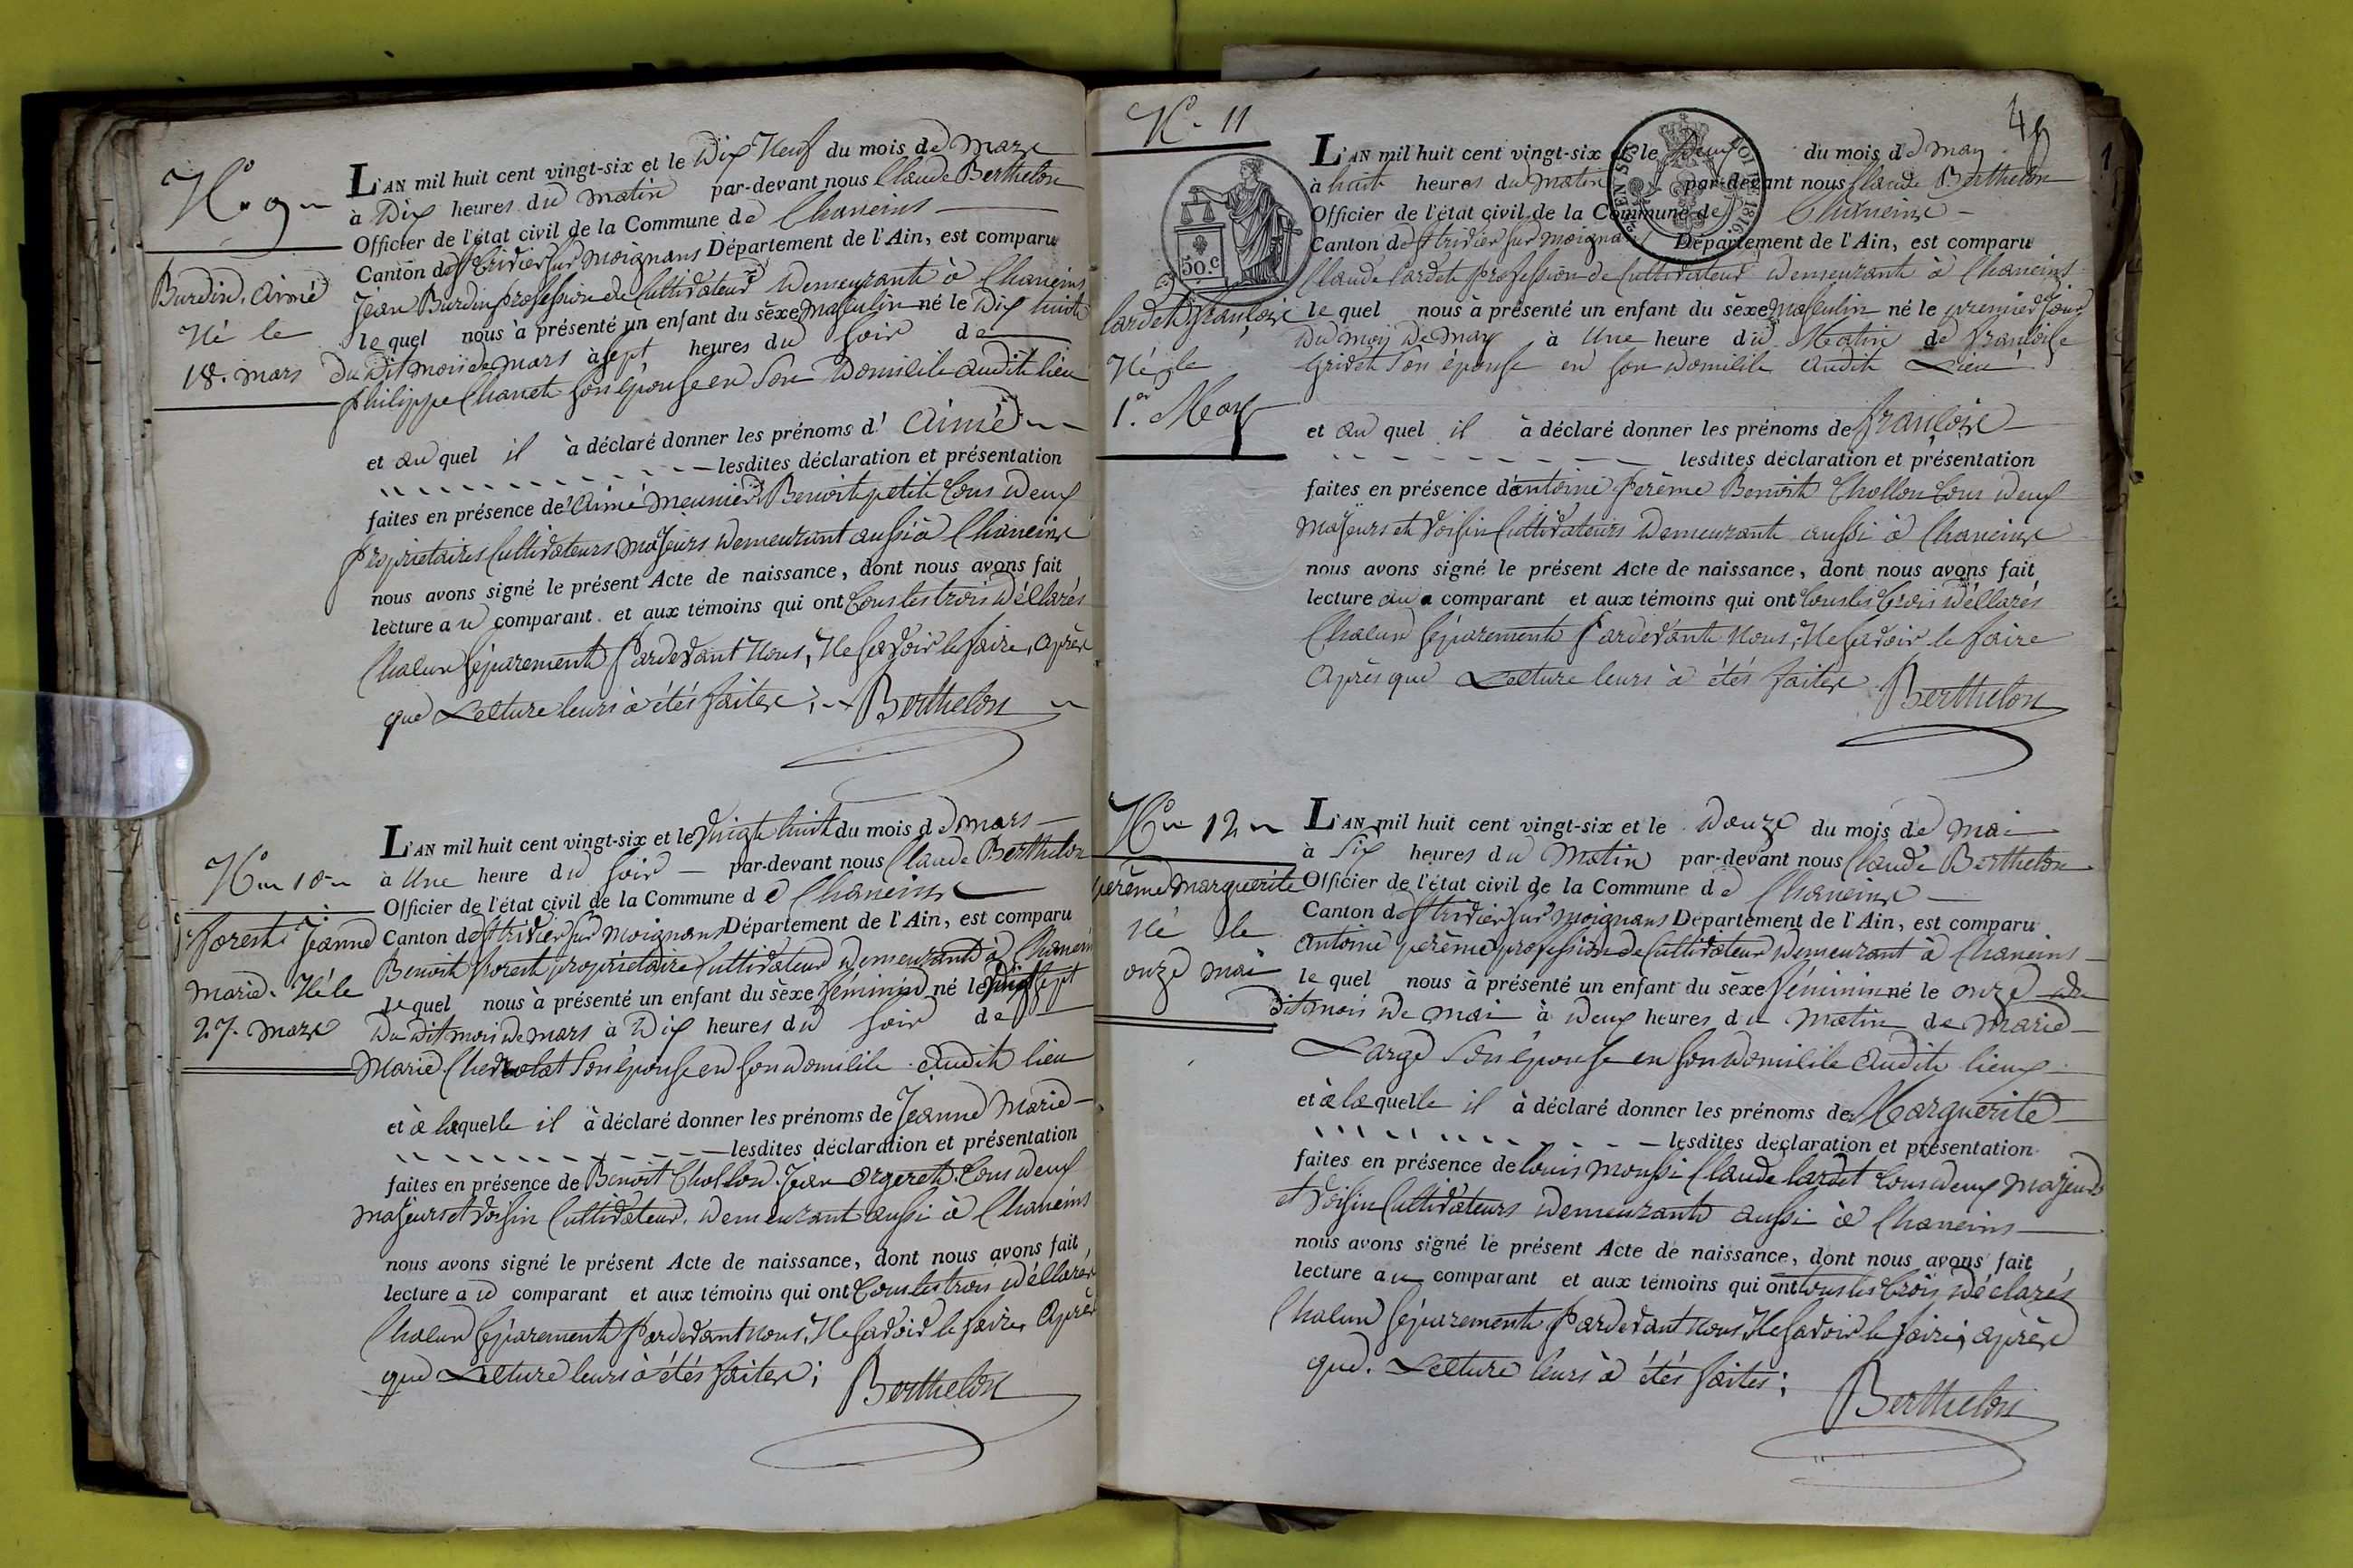 N° 9
Burdin, aimé
Né le
18. mars
L'AN mil huit cent vingt-six et le Dix Neuf du mois de mars
à Dix heures du matin par-devant nous Claude Berthelon
Officier de l'état civil de la Commune de Chaneins
Canton de St tridier sur moignans Département de l'Ain, est comparu
Jean Burdin profession de Cultivateur Demeurant à Chaneins
le quel nous à présenté un enfant du sèxe masculin né le Dix huit
du dit mois de mars à sept heures du soir de
philippe Chanet son épouse en son Domicile audit lieu
et au quel il à déclaré donner les prénoms d' aimé
lesdites déclaration et présentation
faites en présence de aimé meunier Benoit petit tous Deux
propriétaires Cultivateurs majeurs Demeurant aussi à Chaneins
nous avons signé le présent Acte de naissance, dont nous avons fait
lecture au comparant et aux témoins qui ont tous les trois Déclarés
Chacun séparement pardevant Nous, Ne savoir le faire, après
que Lecture leurs à étés faites ; Berthelon
N° 10
forest Jeanne
marie. Né le
27. mars
L'AN mil huit cent vingt-six et le vingt huit du mois de mars
à Une heure du soir par-devant nous Claude Berthelon
Officier de l'état civil de la Commune de Chaneins
Canton de St tridier sur moignans Département de l'Ain, est comparu
Benoit forest propriétaire Cultivateur Demeurant à Chaneins
le quel nous à présenté un enfant du sèxe feminin né le vingt sept
Du dit mois de mars à Dix heures du soir de
Marie son épouse en son Domicile audit lieu
et à laquelle il à déclaré donner les prénoms de Jeanne Marie
lesdites déclaration et présentation
faites en présence de Benoit Chollon Jean orgeret tous Deux
majeurs et voisin Cultivateur. Demeurant aussi à Chaneins
nous avons signé le présent Acte de naissance, dont nous avons fait
lecture au comparant et aux témoins qui ont tous les trois Déclarés
Chacun séparement pardevant nous, Ne savoir le faire, après
que Lecture leurs à étés faites ; Berthelon
N° 11
50.c
LOI DE 1816
Lardet françois
Né le
1.er May
L'AN mil huit cent vingt-six et le Deux du mois de may
à huit heures du matin par-devant nous Claude Berthelon
Officier de l'état civil de la Commune de Chaneins
Canton de St tridier sur moignans Département de l'Ain, est comparu
Claude Lardet profession de Cultivateur Demeurant à Chaneins
le quel nous à présenté un enfant du sèxe masculin né le premier jour
Du moy De may à Une heure du Matin de françoise
Gridet son épouse en son Domicile audit Lieu
et au quel il à déclaré donner les prénoms de françois
lesdites déclaration et présentation
faites en présence d'antoine perème Benoit Chollon tous Deux
majeurs et voisin Cultivateurs Demeurant aussi à Chaneins
nous avons signé le présent Acte de naissance, dont nous avons fait
lecture au comparant et aux témoins qui ont tous les trois Déclarés
Chacun séparement pardevant Nous, Ne savoir le faire
après que Lecture leurs à étés faites Berthelon
N° 12
perème marguerite
Né le
onze mai
L'AN mil huit cent vingt-six et le Douze du mois de mai
à Six heures du Matin par-devant nous Claude Berthelon
Officier de l'état civil de la Commune de Chaneins
Canton de St tridier sur moignans Département de l'Ain, est comparu
antoine perème profession de Cultivateur Demeurant à Chaneins
le quel nous à présenté un enfant du sèxe féminin né le onze du
dit mois De mai à Deux heures du matin de marie
Large son épouse en son Domicile audit lieux
et à la quelle il à déclaré donner les prénoms de Marguerite
lesdites déclaration et présentation
faites en présence de louis moussi Claude lardet tous deux majeurs
et voisin Cultivateurs Demeurant aussi à Chaneins
nous avons signé le présent Acte de naissance, dont nous avons fait
lecture au comparant et aux témoins qui ont tous les trois Déclarés
Chacun séparement pardevant nous, Ne savoir le faire, après
que. Lecture leurs à étés faites ; Berthelon